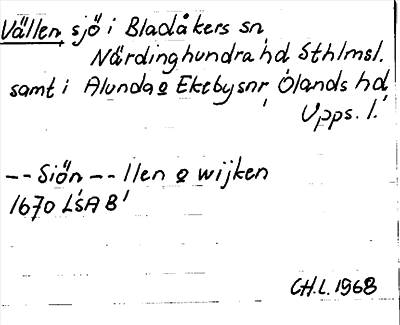 Vällen, sjö i Bladåkers sn,
Närdinghundra hd Sthlmsl.
samt i Alunda o Ekeby snr, Ölands hd,
Upps. l.
-- Siön -- llen o wijken
1670 LSA B1
CH.L. 1968